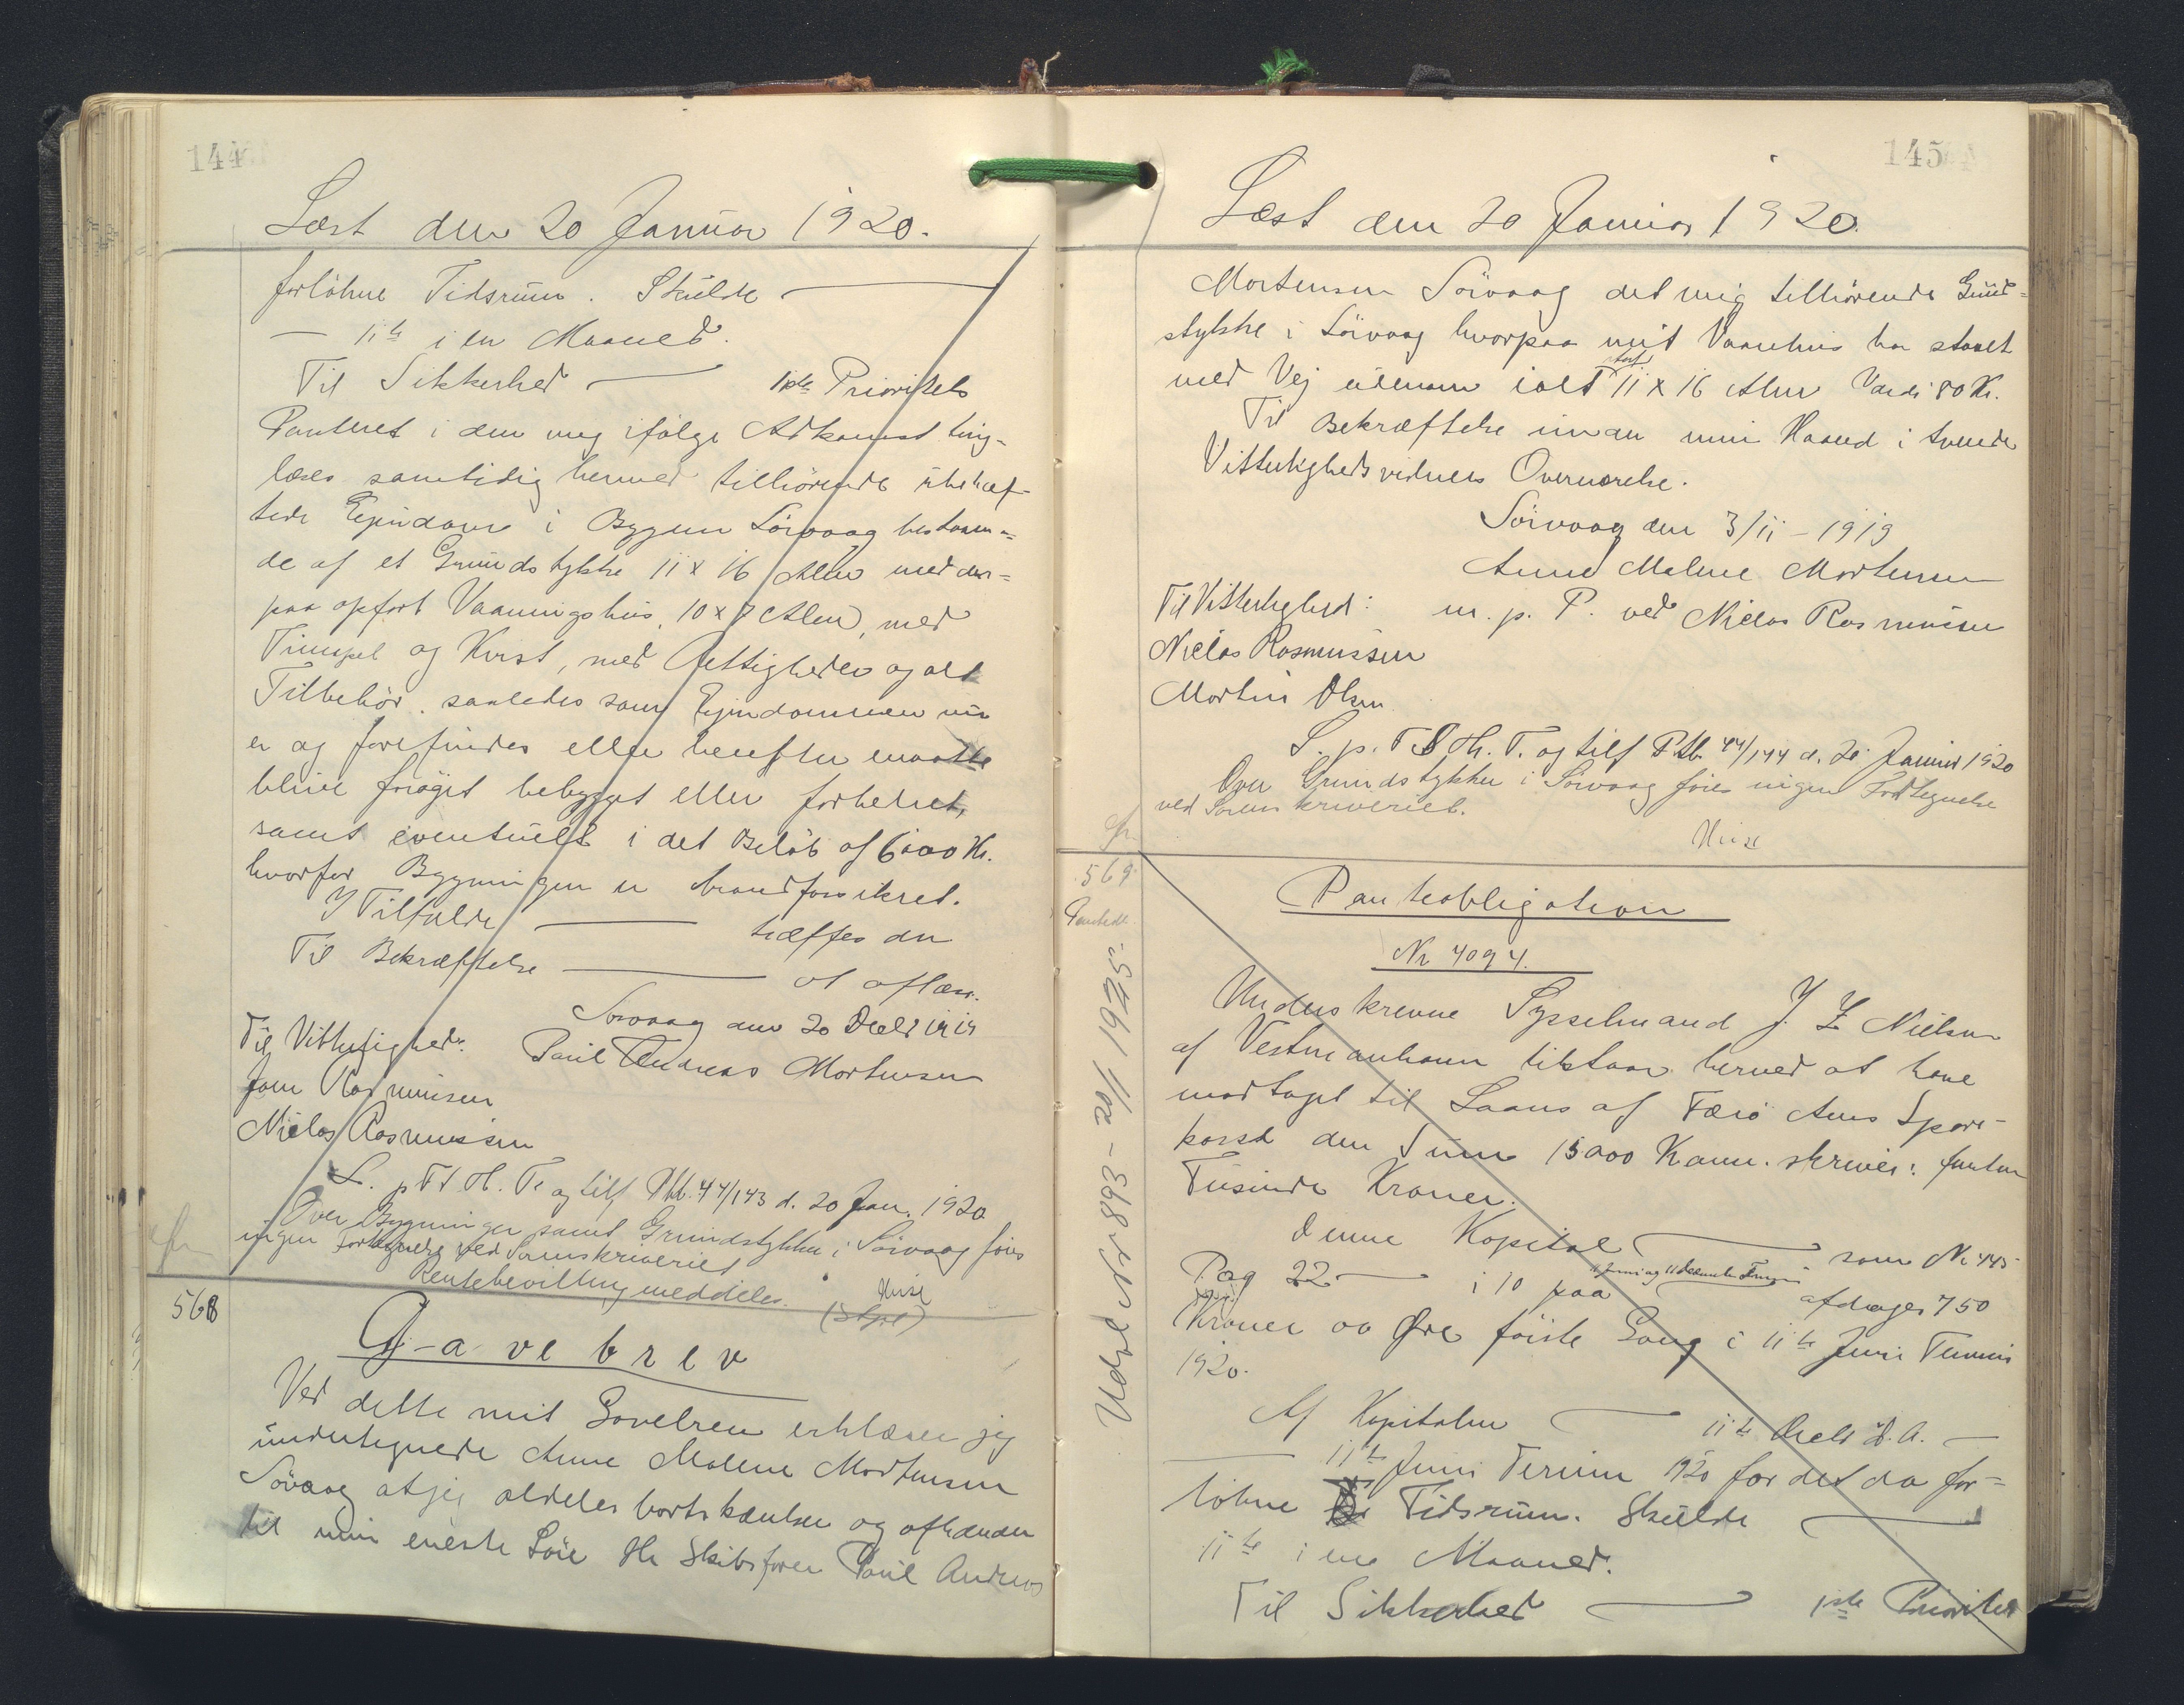 144
Læst den 20 Januar 1920.
forløbne Tidsrum. Skulde —
— 11te i en Maaned.
Til Sikkerhed — 1ste Prioritets
Panteret i den mig ifølge Adkomst ting-
læses samtidig hermed tilhørende ubehæf-
tede Ejendom i Bygden Sörvaag bestaaen=
de af et Grundstykke 11 x 16 Alen med der=
paa opført Vaaningshus, 10 x 7 Alen, med
og Kvist, med Rettigheder og alt
Tilbehör. saaledes som Ejendommen nu
er og forefindes eller herefter maatte
blive forøget bebygget eller forbedret,
samt eventuelt i det Beløb af 6000 Kr.
hvorfor Bygningen er brandforsikret.
I Tilfælde — træffes den
Til Bekræftelse — at aflæse.
Sörvaag den 20 Decbr 1919
Til Vitterlighed: Paul Andreas Mortensen
Joen Rasmussen
Niclas Rasmussen
L. p. F. H. T. og tilf Ptb. 44/143 d. 20 Jan. 1920
Over Bygninger samt Grundstykker i Sörvaag föres
ingen Fortegnelse ved Sorenskriveriet
Rentebevilling meddeles.
568
Gavebrev
Ved dette mit Gavebrev erklærer jeg
undertegnede Anne Malene Mortensen
Sövaag at jeg aldeles bortskænker og afhænder
til min eneste Sön Hr Skibsfører Paul Andreas
145
Læst den 20 Januar 1920.
Mortensen Sörvaag det mig tilhørende Grund=
stykke i Sörvaag hvorpaa mit Vaanhus har staaet
med Vej udenom ialt stort 11 x 16 Alen Værdi 80 Kr.
Til Bekræftelse under min Haand i tvende
Vitterligheds vidners Overværelse.
Sörvaag den 3/11 – 1919
Anne Malene Mortensen
Til Vitterlighed: m. p. P. ved Niclas Rasmussen
Niclas Rasmussen
Martin Olsen
L. p. F H. T. og tilf Ptb. 44/144 d. 20 Januar 1920
Over Grundstykker i Sörvaag föres ingen Fortegnelse
ved Sorenskriveriet.
569
Panteobligation
Nr 4094.
Underskrevne Sysselmand J. Z Nielsen
af Vestmanhavn tilstaar herved at have
modtaget til Laans af Færö Amts Spare-
kasse den Sum 15000 Kroner. skriver: femten
Tusinde Kroner.
Denne Kapital — som Nr 445
Pag 22 — i 10 paa 11 Juni og 11 December Termin afdrages 750
Kroner oo Øre første Gang i 11te Juni Termin
1920.
Af Kapitalen — 11te Decbr d. A. —
— 11te Juni Termin 1920 for det da for=
løbne Tidsrum. Skulde —
11te i en Maaned.
Til Sikkerhed — 1ste Prioritet
Udsl. Nr 893 – 20/1 1925.